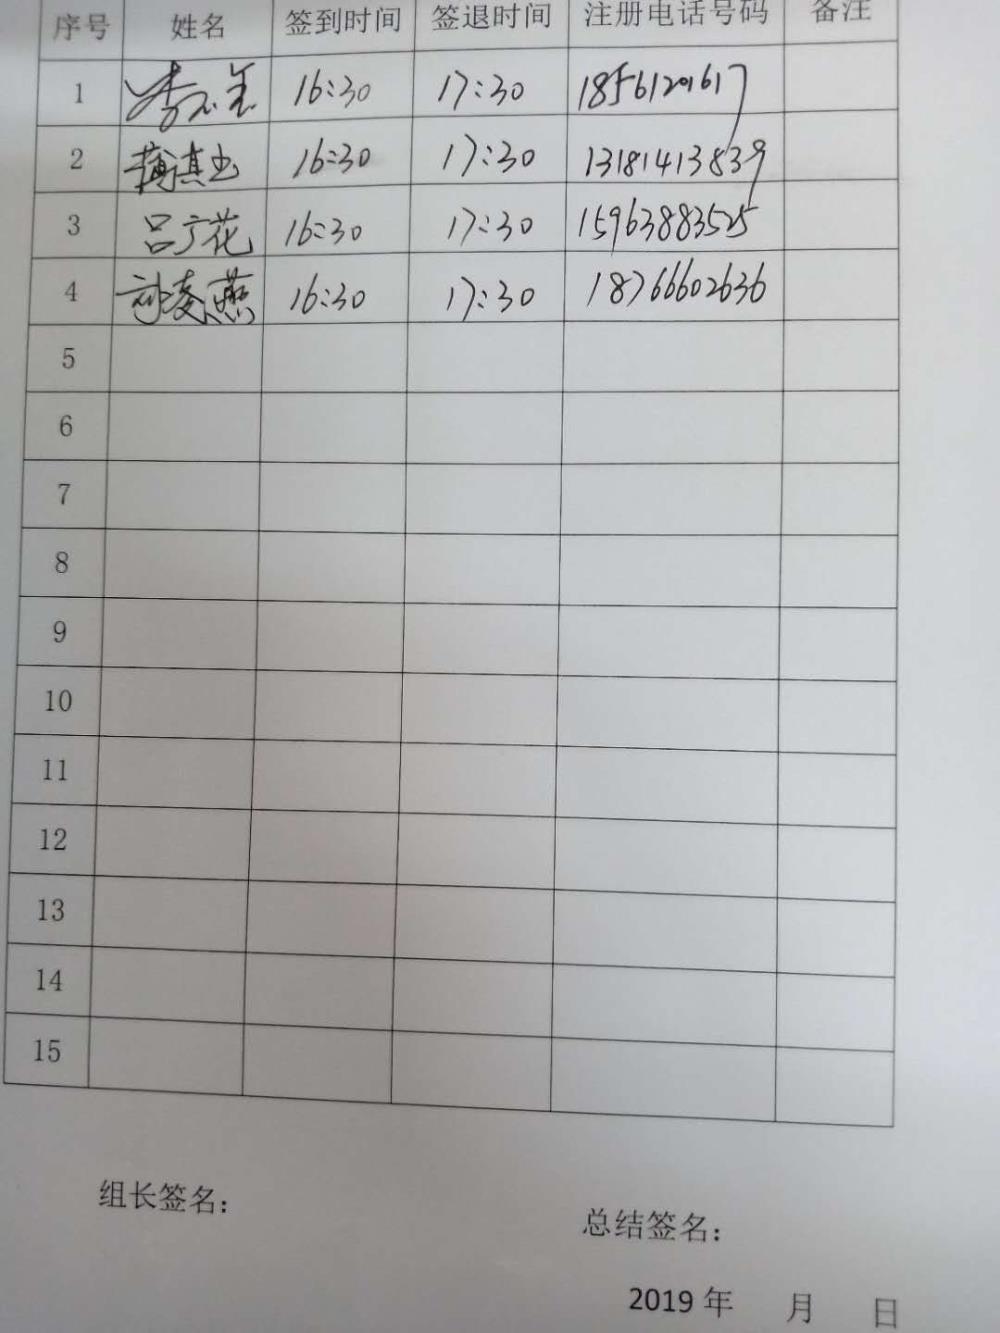 序号 姓名 签到时间 签退时间 注册电话号码 备注
1 李 16:30 17:30 18561201617
2 16:30 17:30 13181413839
3 吕广花 16:30 17:30 15963883525
4 孙凌燕 16:30 17:30 18766602636
5
6
7
8
9
10
11
12
13
14
15
组长签名：
总结签名：
2019 年 月 日